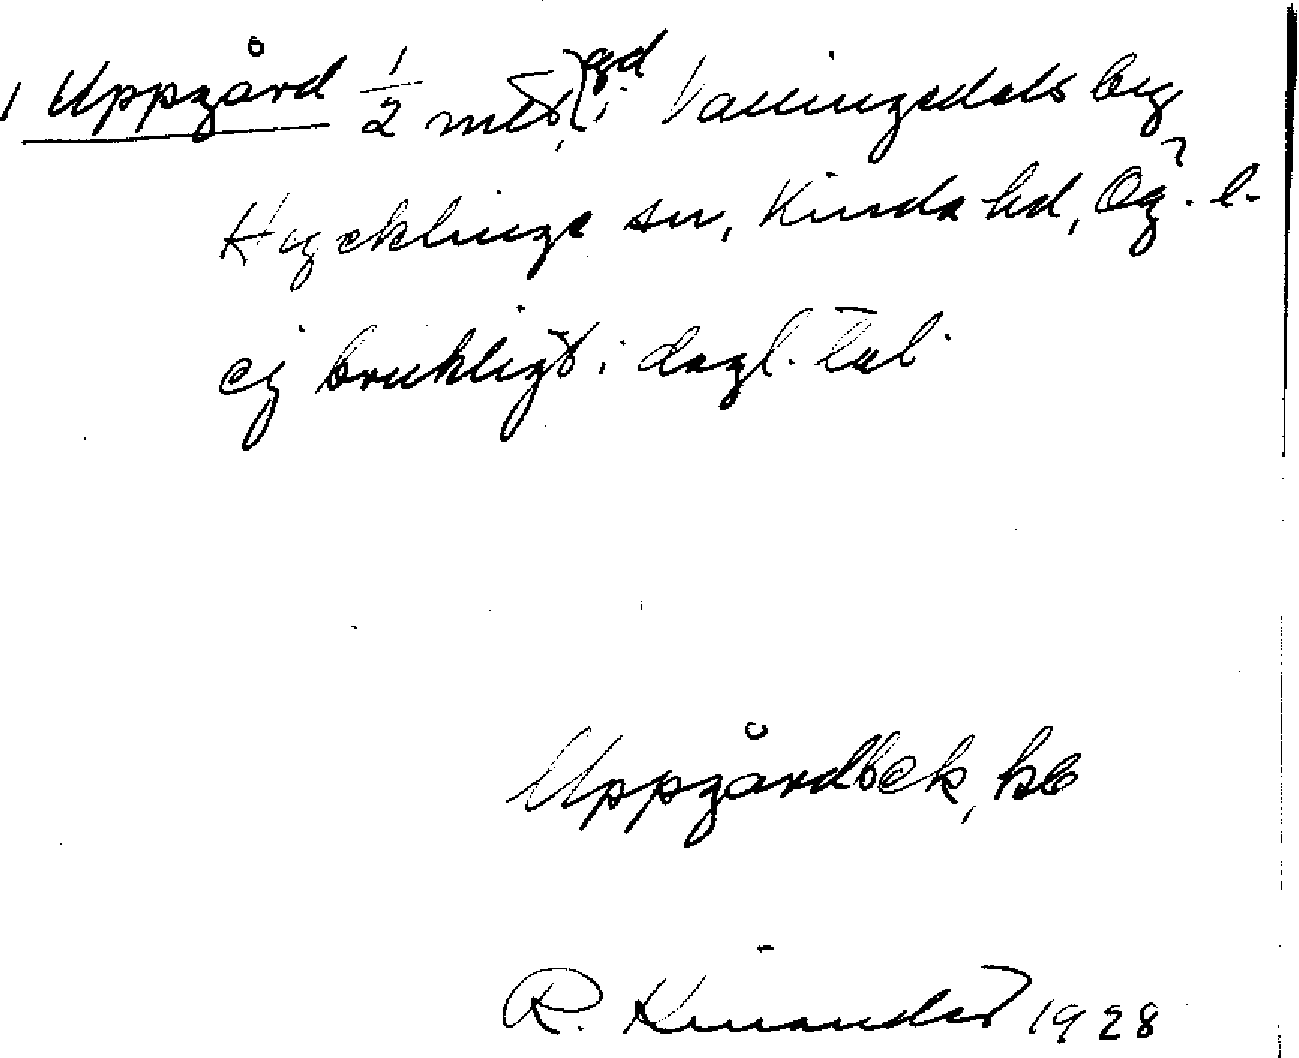 1 Uppgård 1/2 mtl, gd i Vallingedals by
Hycklinge sn, Kinda hd, Ög. l.
ej brukligt i dagl. tal.
Uppgårdbck, hb
R. Kinander 1928